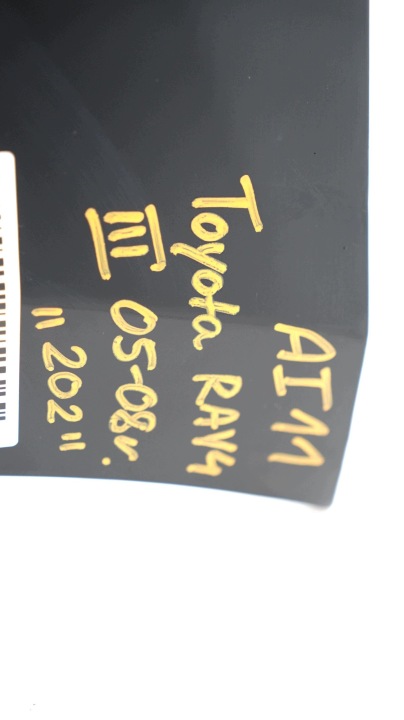 AI11
Toyota RAV4
III 05-08r.
"202"